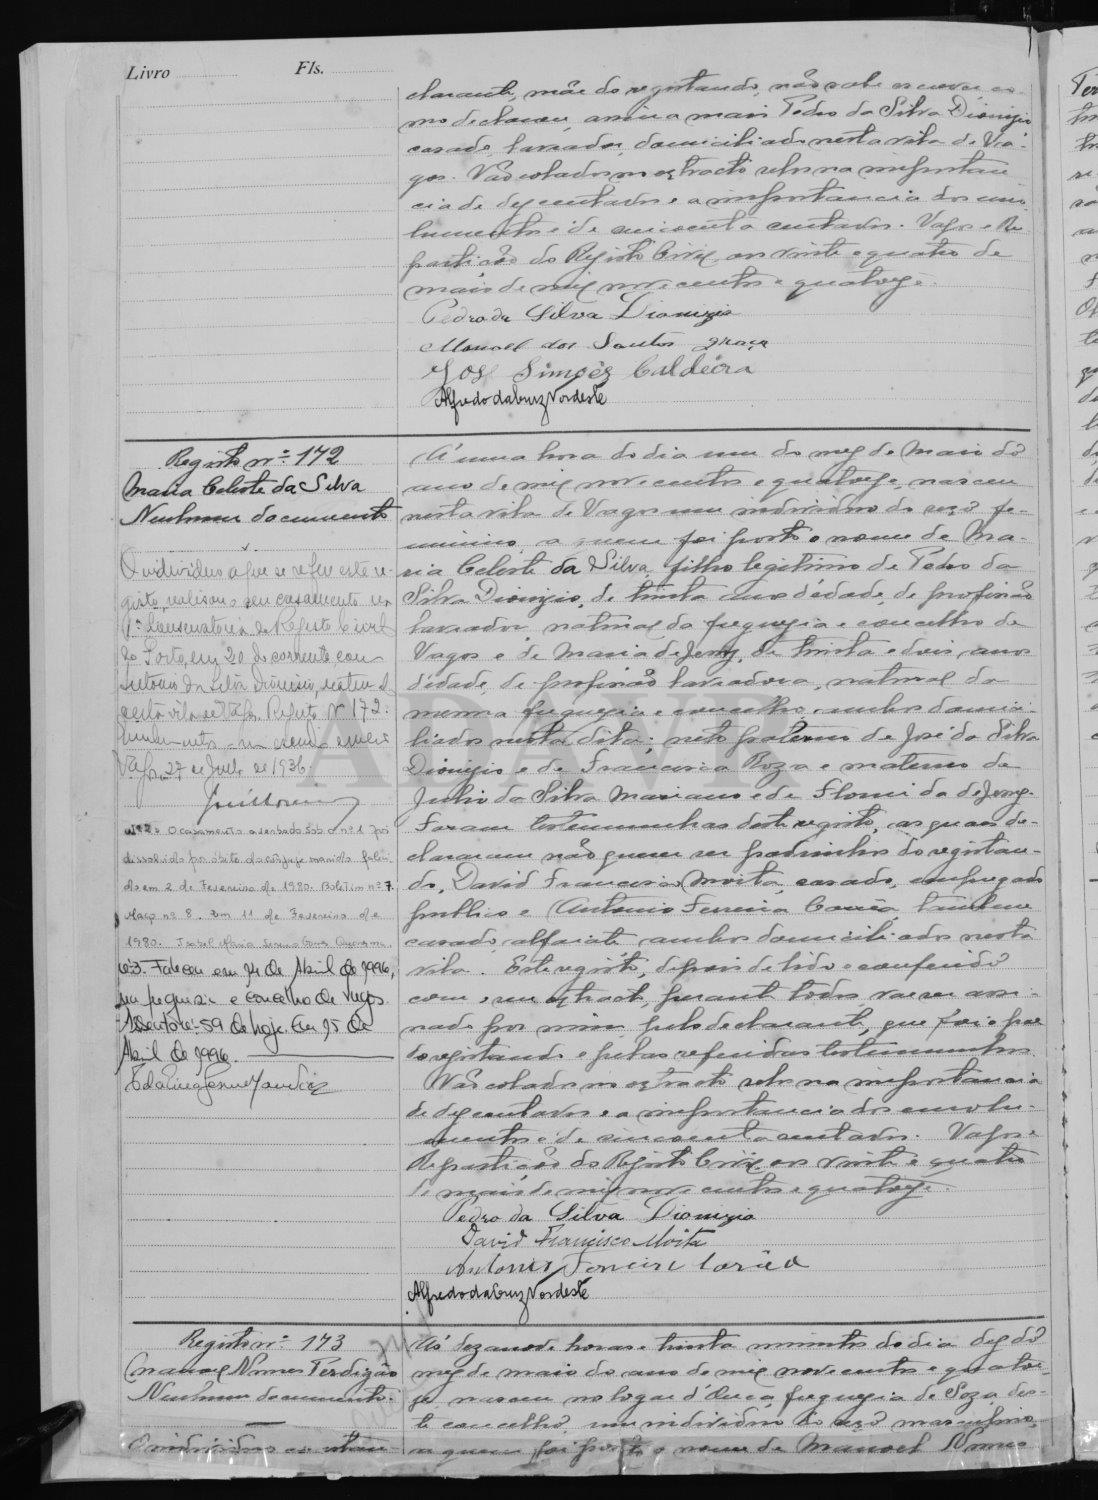 Livro Fls.
clarante, mãe do registando, não sabe escrever, co-
mo declarou, assina mais Pedro da Silva Dionizio
casado, lavrador, domiciliado nesta vila de Va-
gos. Vão colados no extracto selos na importan-
cia de dez centavos e a importancia dos emo-
lumentos é de cincoenta centavos. Vagos e Re-
partição do Registo Civil, aos vinte e quatro de
maio de mil nove centos e quatorze.
Pedro da Silva Dionizio
Manoel dos Santos
José Simões Caldeira
Alfredo da Cruz Nordeste
Registo nº 172
Maria Celeste da Silva
Nenhum documento
O individuo a que se refere este re-
gisto, realisou o seu casamento na
1ª Conservatoria do Registo Civil
do Porto, em 20 do corrente com
Antonio da Silva Dionisio,
desta vila de Vagos. Registo Nº 172.
Vagos, 27 de Julho de 1936.
nº 2. O casamento averbado sob o nº 1 foi
dissolvido por óbito do cônjuge marido faleci-
do em 2 de Fevereiro de 1980. Boletim nº 7.
Maço nº 8. Em 11 de Fevereiro de
1980. Isabel Maria
nº 3. Faleceu em 24 de Abril de 1996,
na freguesia e concelho de Vagos.
Assento nº 59 de hoje. Em 25 de
Abril de 1996.
Á uma hora do dia um do mez de Maio do
ano de mil nove centos e quatorze, nasceu
nesta vila de Vagos um individuo do sexo fe-
minino, a quem foi posto o nome de Ma-
ria Celeste da Silva, filho legitimo de Pedro da
Silva Dionizio, de trinta anos d'edade, de profissão
lavrador, natural da freguezia e concelho de
Vagos e de Maria de Jesus, de trinta e dois anos
d'edade, de profissão lavradora, natural da
mesma freguezia e concelho, ambos domici-
liados nesta dita; neto paterno de José da Silva
Dionizio e de Francisca Roza e materno de
Julio da Silva Mariano e de Florinda de Jesus.
Foram testemunhas deste registo, as quaes de-
clararam não querer ser padrinhos do registan-
do, David Francisco Moita, casado, empregado
publico e Antonio Ferreira Corrêa, tambem
casado, alfaiate, ambos domiciliados nesta
vila. Este registo, depois de lido e conferido
com o seu extracto, perante todos, vae ser assi-
nado por mim, pelo declarante, que foi o pae
do registando e pelas referidas testemunhas.
Vão colados no extracto selos na importancia
de dez centavos e a importancia dos emolu-
mentos é de cincoenta centavos. Vagos e
Repartição do Registo Civil, aos vinte e quatro
de maio de mil nove centos e quatorze.
Pedro da Silva Dionizio
David Francisco Moita
Antonio Ferreira Corrêa
Alfredo da Cruz Nordeste
Registo nº 173
Manoel Nunes Perdigão
Nenhum documento.
O individuo
Ás dezanove horas e trinta minutos do dia dez do
mez de maio do ano de mil nove centos e quator-
ze, nasceu no logar d'Ouca, freguezia de Soza, des-
te concelho, um individuo do sexo masculino,
a quem foi posto o nome de Manoel Nunes
ADAVR